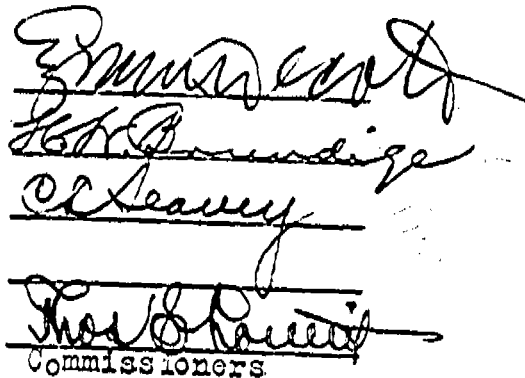 Decoto
H. W. Brundige
C L Seavey
Thos S Louttit
Commissioners